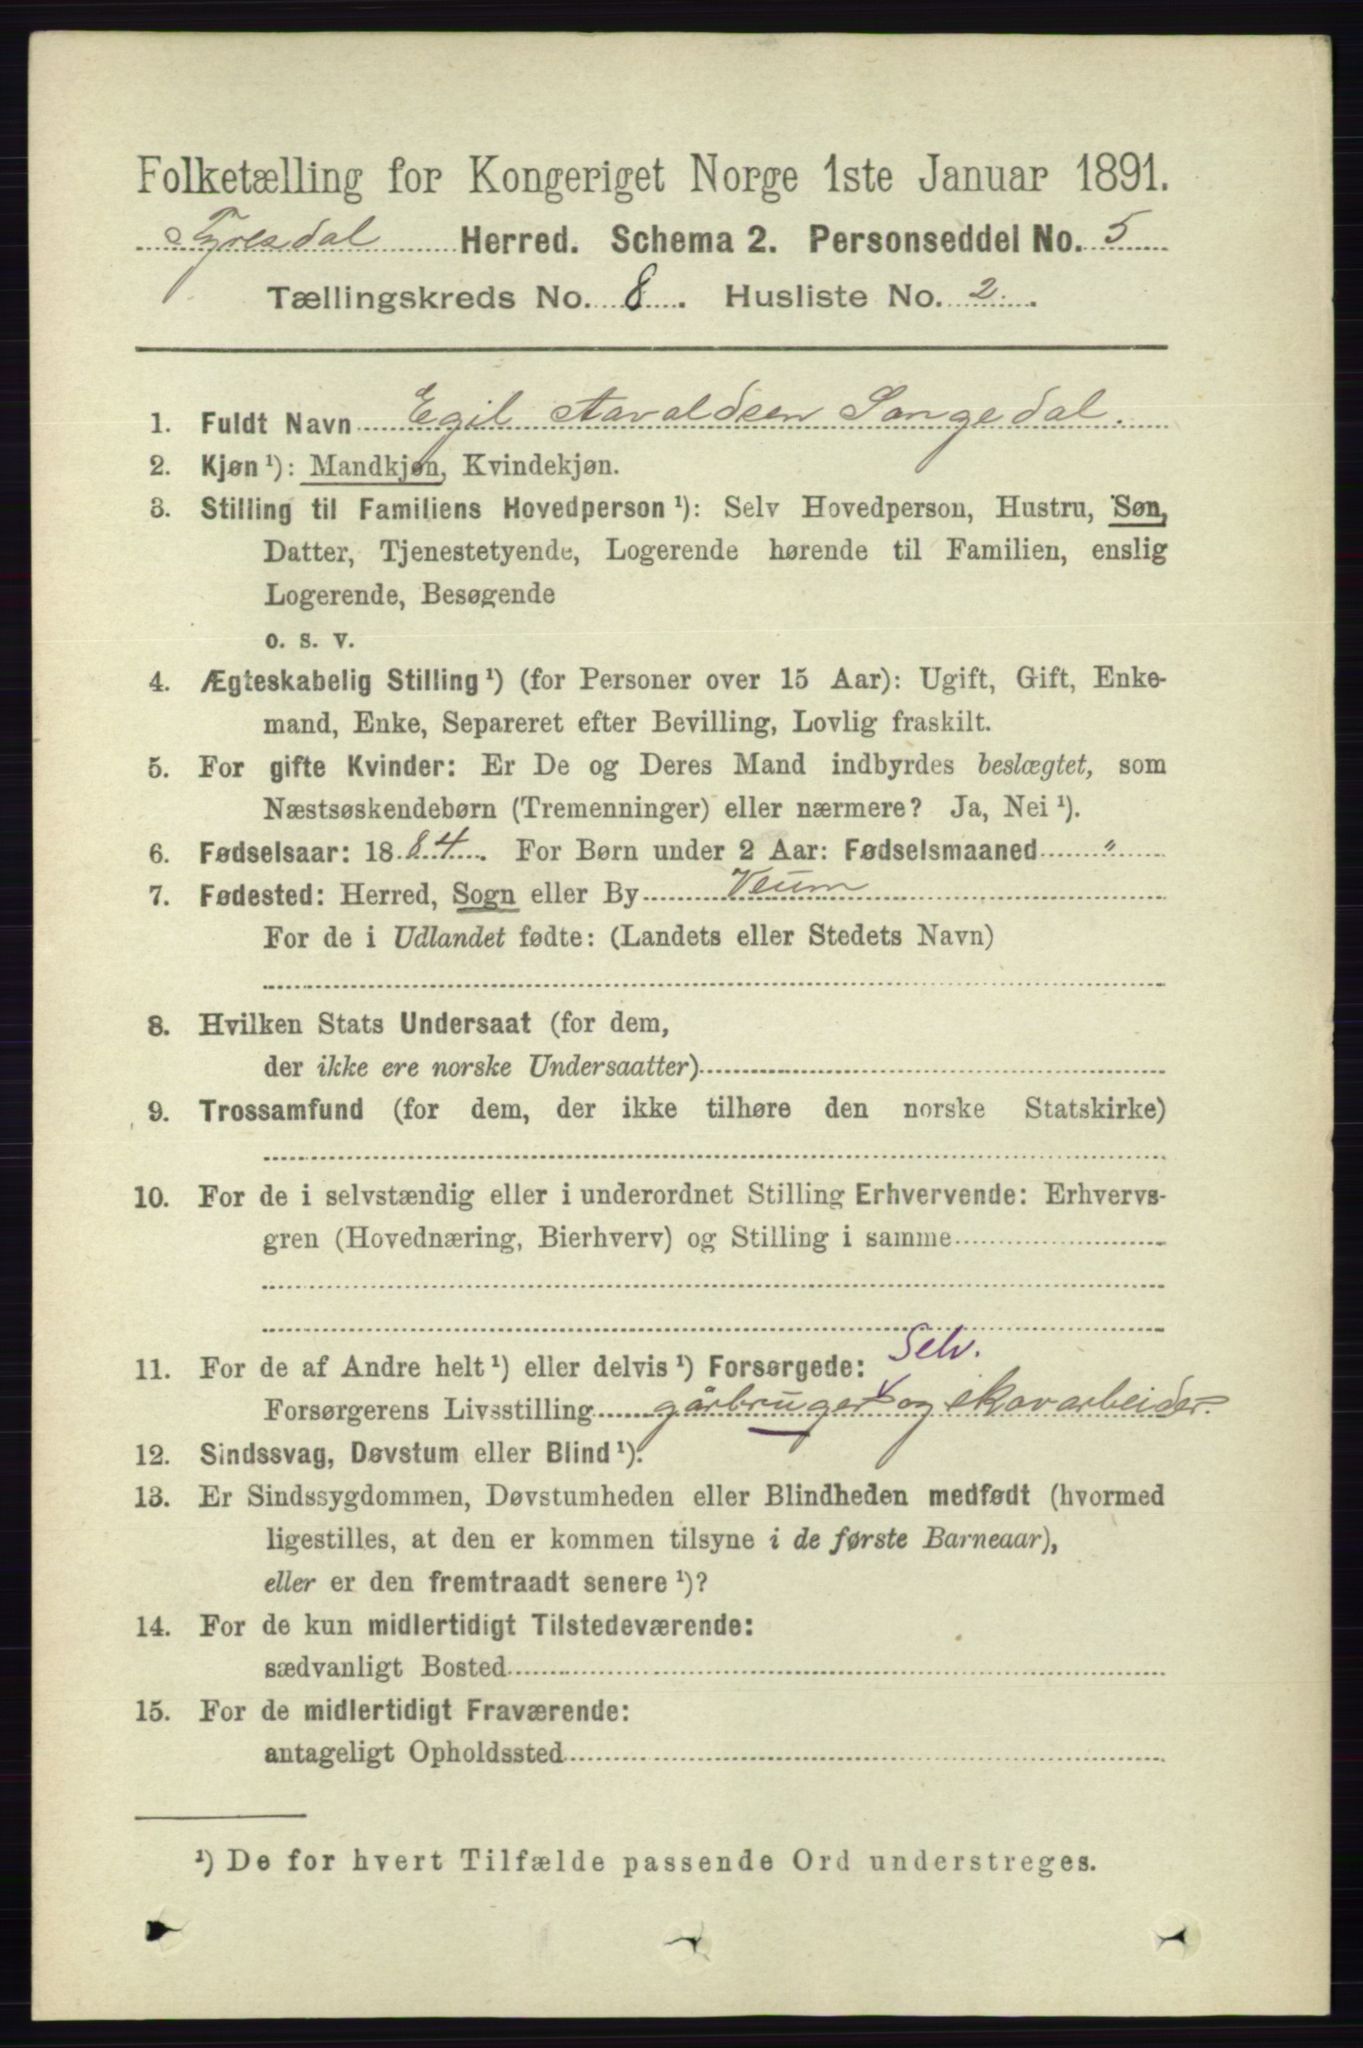 Folketælling for Kongeriget Norge 1ste Januar 1891.
Tyresdal Herred. Schema 2. Personseddel No. 5
Tællingskreds No. 8. Husliste No. 2.
1. Fuldt Navn Egil Aavaldsen Songedal.
2. Kjøn ¹): Mandkjøn, Kvindekjøn.
3. Stilling til Familiens Hovedperson ¹): Selv Hovedperson, Hustru, Søn,
Datter, Tjenestetyende, Logerende hørende til Familien, enslig
Logerende, Besøgende
o. s. v.
4. Ægteskabelig Stilling ¹) (for Personer over 15 Aar): Ugift, Gift, Enke-
mand, Enke, Separeret efter Bevilling, Lovlig fraskilt.
5. For gifte Kvinder: Er De og Deres Mand indbyrdes beslægtet, som
Næstsøskendebørn (Tremenninger) eller nærmere? Ja, Nei ¹).
6. Fødselsaar: 1884. For Børn under 2 Aar: Fødselsmaaned "
7. Fødested: Herred, Sogn eller By Veum
For de i Udlandet fødte: (Landets eller Stedets Navn)
8. Hvilken Stats Undersaat (for dem,
der ikke ere norske Undersaatter)
9. Trossamfund (for dem, der ikke tilhøre den norske Statskirke)
10. For de i selvstændig eller i underordnet Stilling Erhvervende: Erhvervs-
gren (Hovednæring, Bierhverv) og Stilling i samme
Selv.
11. For de af Andre helt ¹) eller delvis ¹) Forsørgede:
Forsørgerens Livsstilling gårbruger og skovarbeider.
12. Sindssvag, Døvstum eller Blind ¹).
13. Er Sindssygdommen, Døvstumheden eller Blindheden medfødt (hvormed
ligestilles, at den er kommen tilsyne i de første Barneaar),
eller er den fremtraadt senere ¹)?
14. For de kun midlertidigt Tilstedeværende:
sædvanligt Bosted
15. For de midlertidigt Fraværende:
antageligt Opholdssted
¹) De for hvert Tilfælde passende Ord understreges.